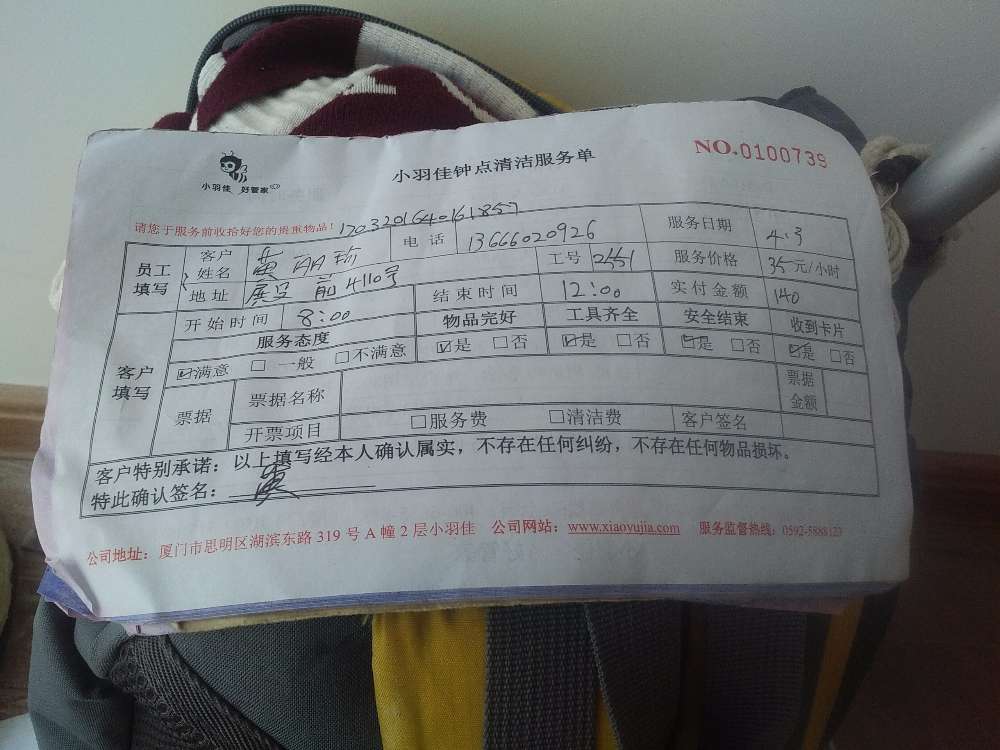 小羽佳 好管家
小羽佳钟点清洁服务单
NO.0100739
请您于服务前收拾好您的贵重物品! 1703201640161857
员工填写 客户姓名 黄 电话 13666020926 服务日期 4.3
地址 前4110号 工号 服务价格 35元/小时
客户填写 开始时间 8:00 结束时间 12:00 实付金额 140
服务态度 物品完好 工具齐全 安全结束 收到卡片
☑满意 □ 一般 □不满意 ☑是 □否 ☑是 □否 ☑是 □否 ☑是 □否
票据 票据名称 票据金额
开票项目 □服务费 □清洁费 客户签名
客户特别承诺：以上填写经本人确认属实，不存在任何纠纷，不存在任何物品损坏。
特此确认签名： 黄
公司地址：厦门市思明区湖滨东路 319 号 A 幢 2 层小羽佳 公司网站：www.xiaoyujia.com 服务监督热线：0592-5888123